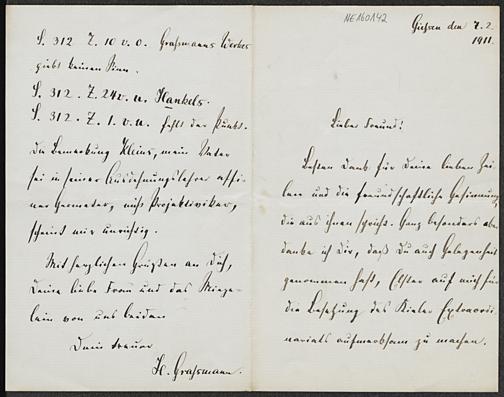 NE160142
Gießen den 7. 2.
1911.
Lieber Freund!
Besten Dank für Deine lieben Zei-
len und die freundschaftliche Gesinnung,
die aus ihnen spricht. Ganz besonders aber
danke ich Dir, daß Du auch Gelegenheit
genommen hast, Elster auf mich für
die Besetzung des Kieler Extraordi-
nariats aufmerksam zu machen.
S. 312 Z. 10 v. o. Graßmanns Werkes
giebt keinen Sinn.
S. 312. Z. 24 v. u. Hankels.
S. 312. Z. 1. v. u. fehlt der Punkt.
Die Bemerkung Kleins, mein Vater
sei in seiner Ausdehnungslehre affi-
ner Geometer, nicht Projektiviker,
scheint mir unrichtig.
Mit herzlichen Grüßen an Dich,
Deine liebe Frau und das
lein von uns beiden
Dein treuer
H. Graßmann.